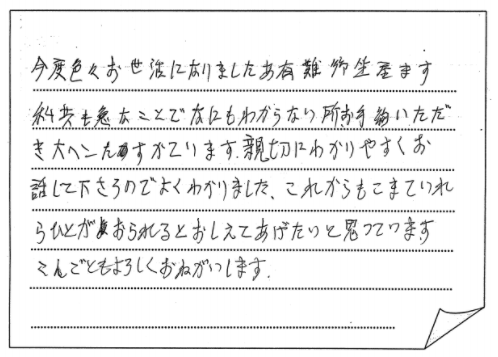 今度色々お世話になりましたあ有難物生産ます
私共も急なことでなにもわからない所お手伝いただ
き大ヘンたすかています.親切にわかりやすくお
話して下さるのでよくわかりました、これからもこまていれ
らひとがおられるとおしえてあげたいと思っています
こんごともよろしくおねがいします.